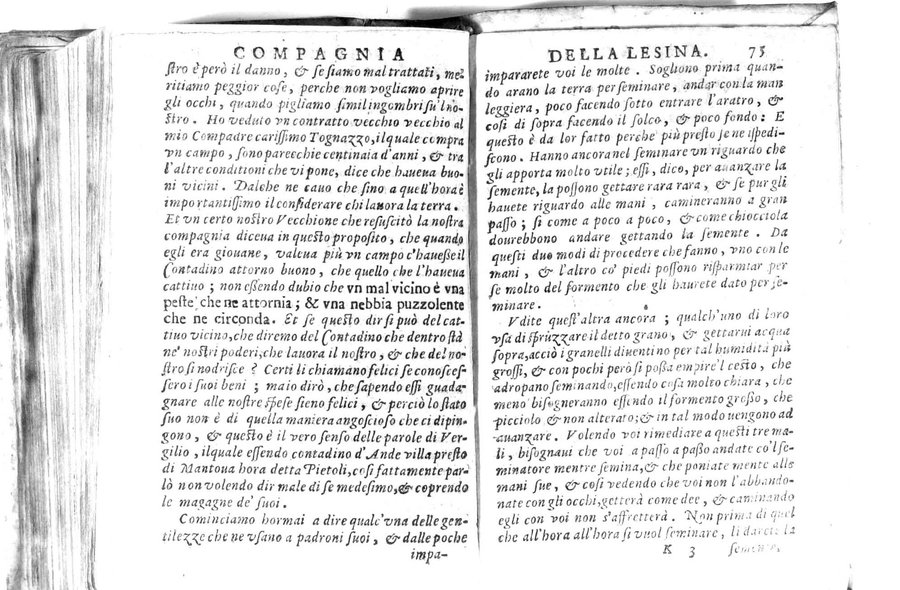 COMPAGNIA
ſtro è però il danno, & ſe ſiamo mal trattati, me-
ritiamo peggior coſe, perche non vogliamo aprire
gli occhi, quando pigliamo ſimil ingombri ſu'l no-
ſtro. Ho veduto vn contratto vecchio vecchio al
mio Compadre cariſſimo Tognazzo, il quale compra
vn campo, ſono parecchie centinaia d'anni, & tra
l'altre conditioni che vi pone, dice che haueua buo-
ni vicini. Dalche ne cauo che ſino a quell'hora è
importantiſſimo il conſiderare chi lauora la terra.
Et vn certo noſtro Vecchione che reſuſcitò la noſtra
compagnia diceua in queſto propoſito, che quando
egli era giouane, valcua più vn campo c'haueſſe il
Contadino attorno buono, che quello che l'haueua
cattiuo; non eſſendo dubio che vn mal vicino è vna
peſte che ne attornia; & vna nebbia puzzolente
che ne circonda. Et ſe queſto dir ſi può del cat-
tiuo vicino, che diremo del Contadino che dentro ſtà
ne' noſtri poderi, che lauora il noſtro, & che del no-
ſtro ſi nodriſce? Certi li chiamano felici ſe conoſceſ-
ſero i ſuoi beni; ma io dirò, che ſapendo eſſi guada-
gnare alle noſtre ſpeſe ſieno felici, & perciò lo ſtato
ſuo non è di quella maniera angoſcioſo che ci dipin-
gono, & queſto è il vero ſenſo delle parole di Ver-
gilio, ilquale eſſendo contadino d'Ande villa preſto
di Mantoua hora detta Pietoli, coſi fattamente par-
lò non volendo dir male di ſe medeſimo, & coprendo
le magagne de' ſuoi.
Cominciamo hormai a dire qualc'vna delle gen-
tilezze che ne vſano a padroni ſuoi, & dalle poche
impa-
DELLA LESINA. 75
impararete voi le molte. Sogliono prima quan-
do arano la terra per ſeminare, andar con la man
leggiera, poco facendo ſotto entrare l'aratro, &
coſi di ſopra facendo il ſolco, & poco fondo: E
queſto è da lor fatto perche più preſto ſe ne iſpedi-
ſcono. Hanno ancora nel ſeminare vn riguardo che
gli apporta molto vtile; eſſi, dico, per auanzare la
ſemente, la poſſono gettare rara rara, & ſe pur gli
hauete riguardo alle mani, camineranno a gran
paſſo; ſi come a poco a poco, & come chiocciola
dourebbono andare gettando la ſemente. Da
queſti due modi di procedere che fanno, vno con le
mani, & l'altro co' piedi poſſono riſparmiar per
ſe molto del formento che gli haurete dato per ſe-
minare.
Vdite queſt'altra ancora; qualch'uno di loro
vſa di ſpruzzare il detto grano, & gettarui acqua
ſopra, acciò i granelli diuentino per tal humidità più
groſſi, & con pochi però ſi poſſa empire'l ceſto, che
adropano ſeminando, eſſendo coſa molto chiara, che
meno biſogneranno eſſendo il formento groſſo, che
picciolo & non alterato; & in tal modo uengono ad
auanzare. Volendo voi rimediare a queſti tre ma-
li, biſognaui che voi a paſſo a paſſo andate co'l ſe-
minatore mentre ſemina, & che poniate mente alle
mani ſue, & coſi vedendo che voi non l'abbando-
nate con gli occhi, getterà come dee, & caminando
egli con voi non s'affretterà. Non prima di quel
che all'hora all'hora ſi vuol ſeminare, li darete la
K 3 ſemente,